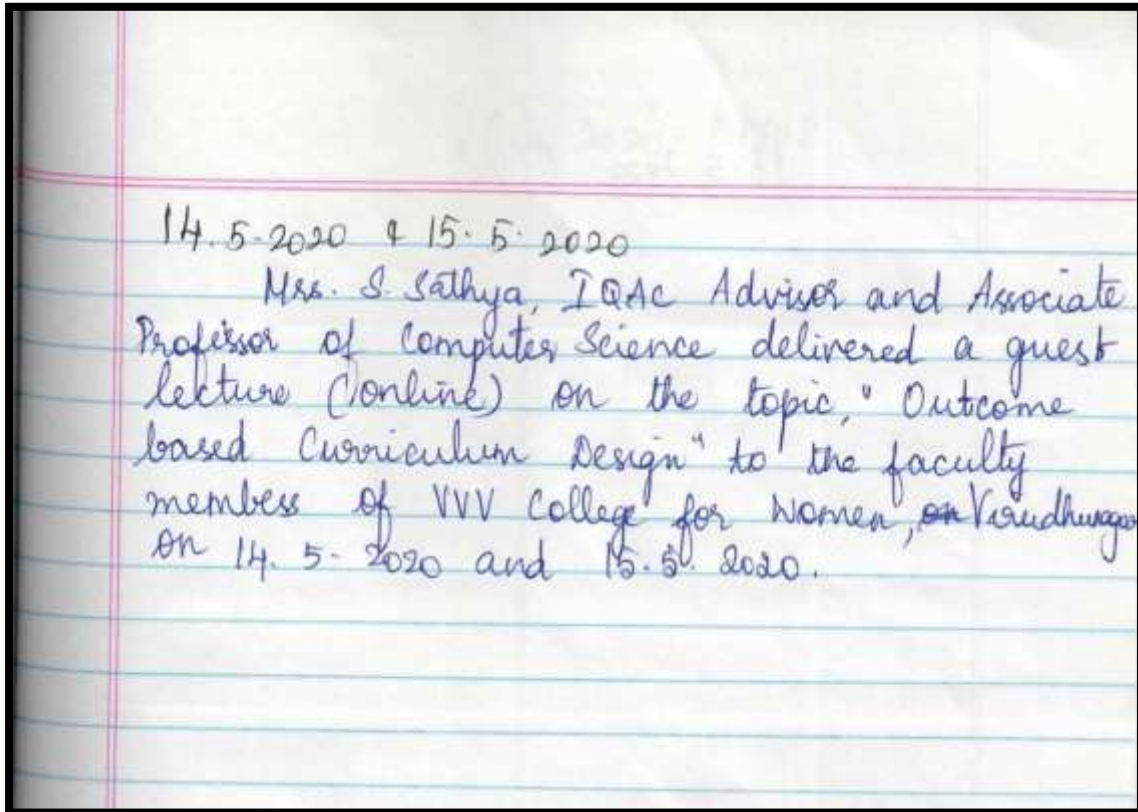 14.5.2020 & 15.5.2020
Mrs. S. Sathya, IQAC Advisor and Associate
Professor of Computer Science delivered a guest
lecture (online) on the topic, "Outcome
based Curriculum Design" to the faculty
members of VVV College for Women, Virudhunagar
on 14.5.2020 and 15.5.2020.